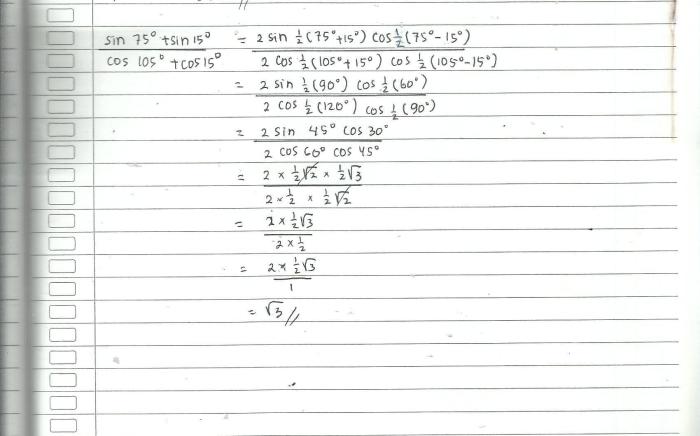 //
sin 75° + sin 15° = 2 sin ½ (75° + 15°) cos ½ (75° - 15°)
cos 105° + cos 15° 2 cos ½ (105° + 15°) cos ½ (105° - 15°)
= 2 sin ½ (90°) cos ½ (60°)
2 cos ½ (120°) cos ½ (90°)
= 2 sin 45° cos 30°
2 cos 60° cos 45°
= 2 × ½√2 × ½√3
2 × ½ × ½√2
= 2 × ½√3
2 × ½
= 2 × ½√3
1
= √3 //